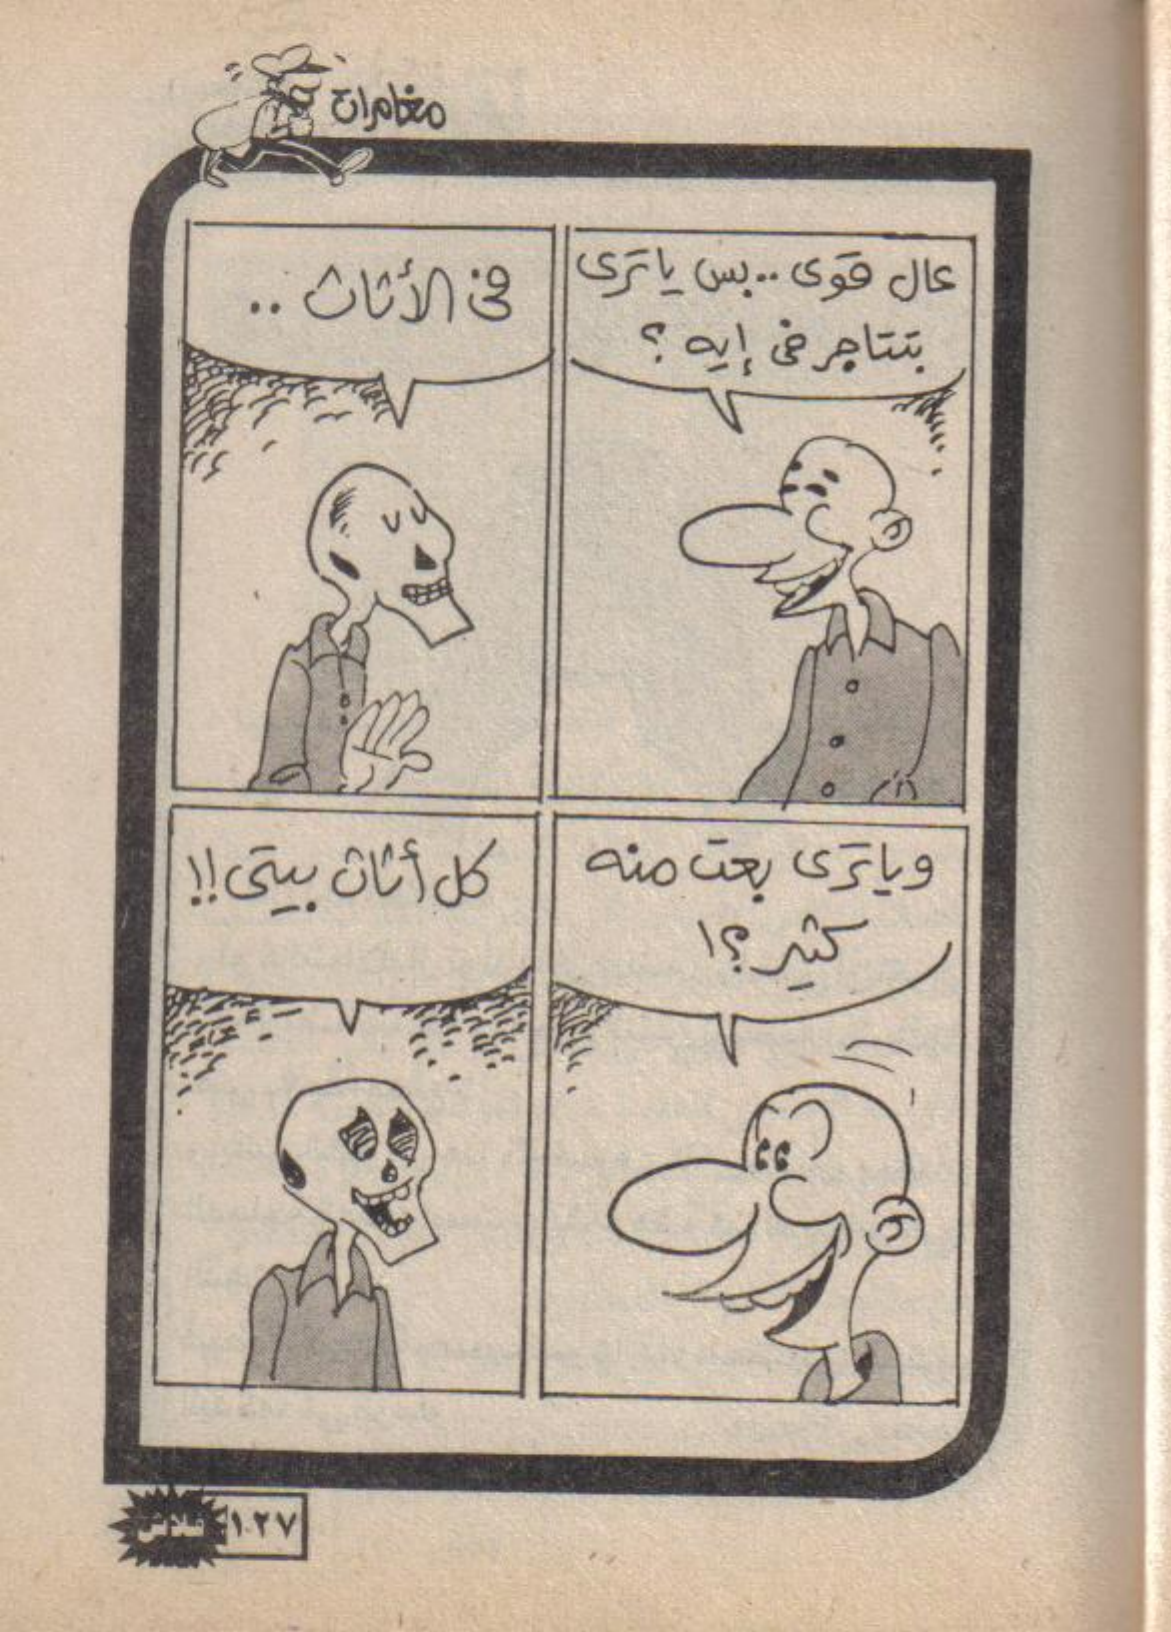 مغامرات
عال قوى .. بس ياترى
بتتاجر فى إيه ؟
فى الأثاث ..
وياترى بعت منه
كثير ؟!
كل أثاث بيتى !!
١٢٧
فلاش